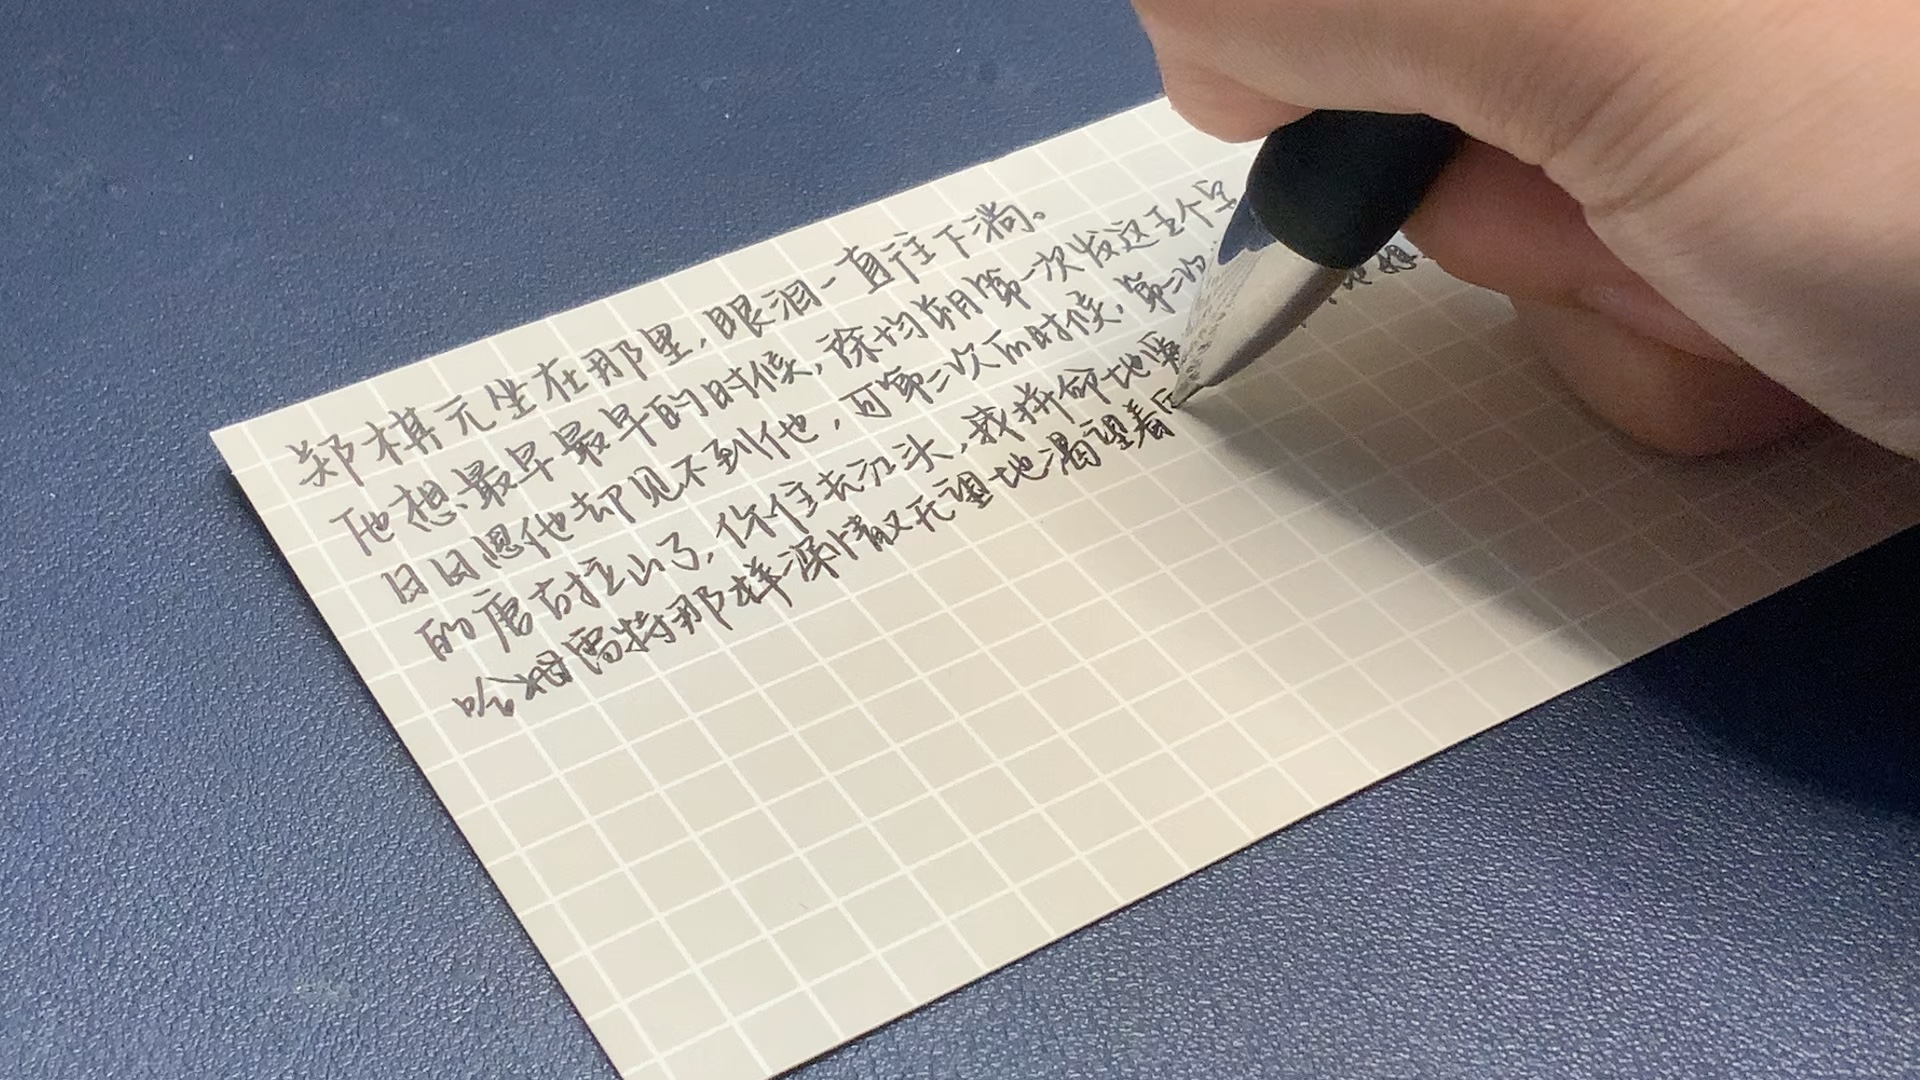 郑棋元坐在那里,眼泪一直往下淌。
他想,最早最早的时候,徐均朔第一次发这五个字
日日思他却见不到他,可第二次的时候,第二次
的唐古拉山了,你住长江头,我拼命地
哈姆雷特那样深情又无望地渴望着